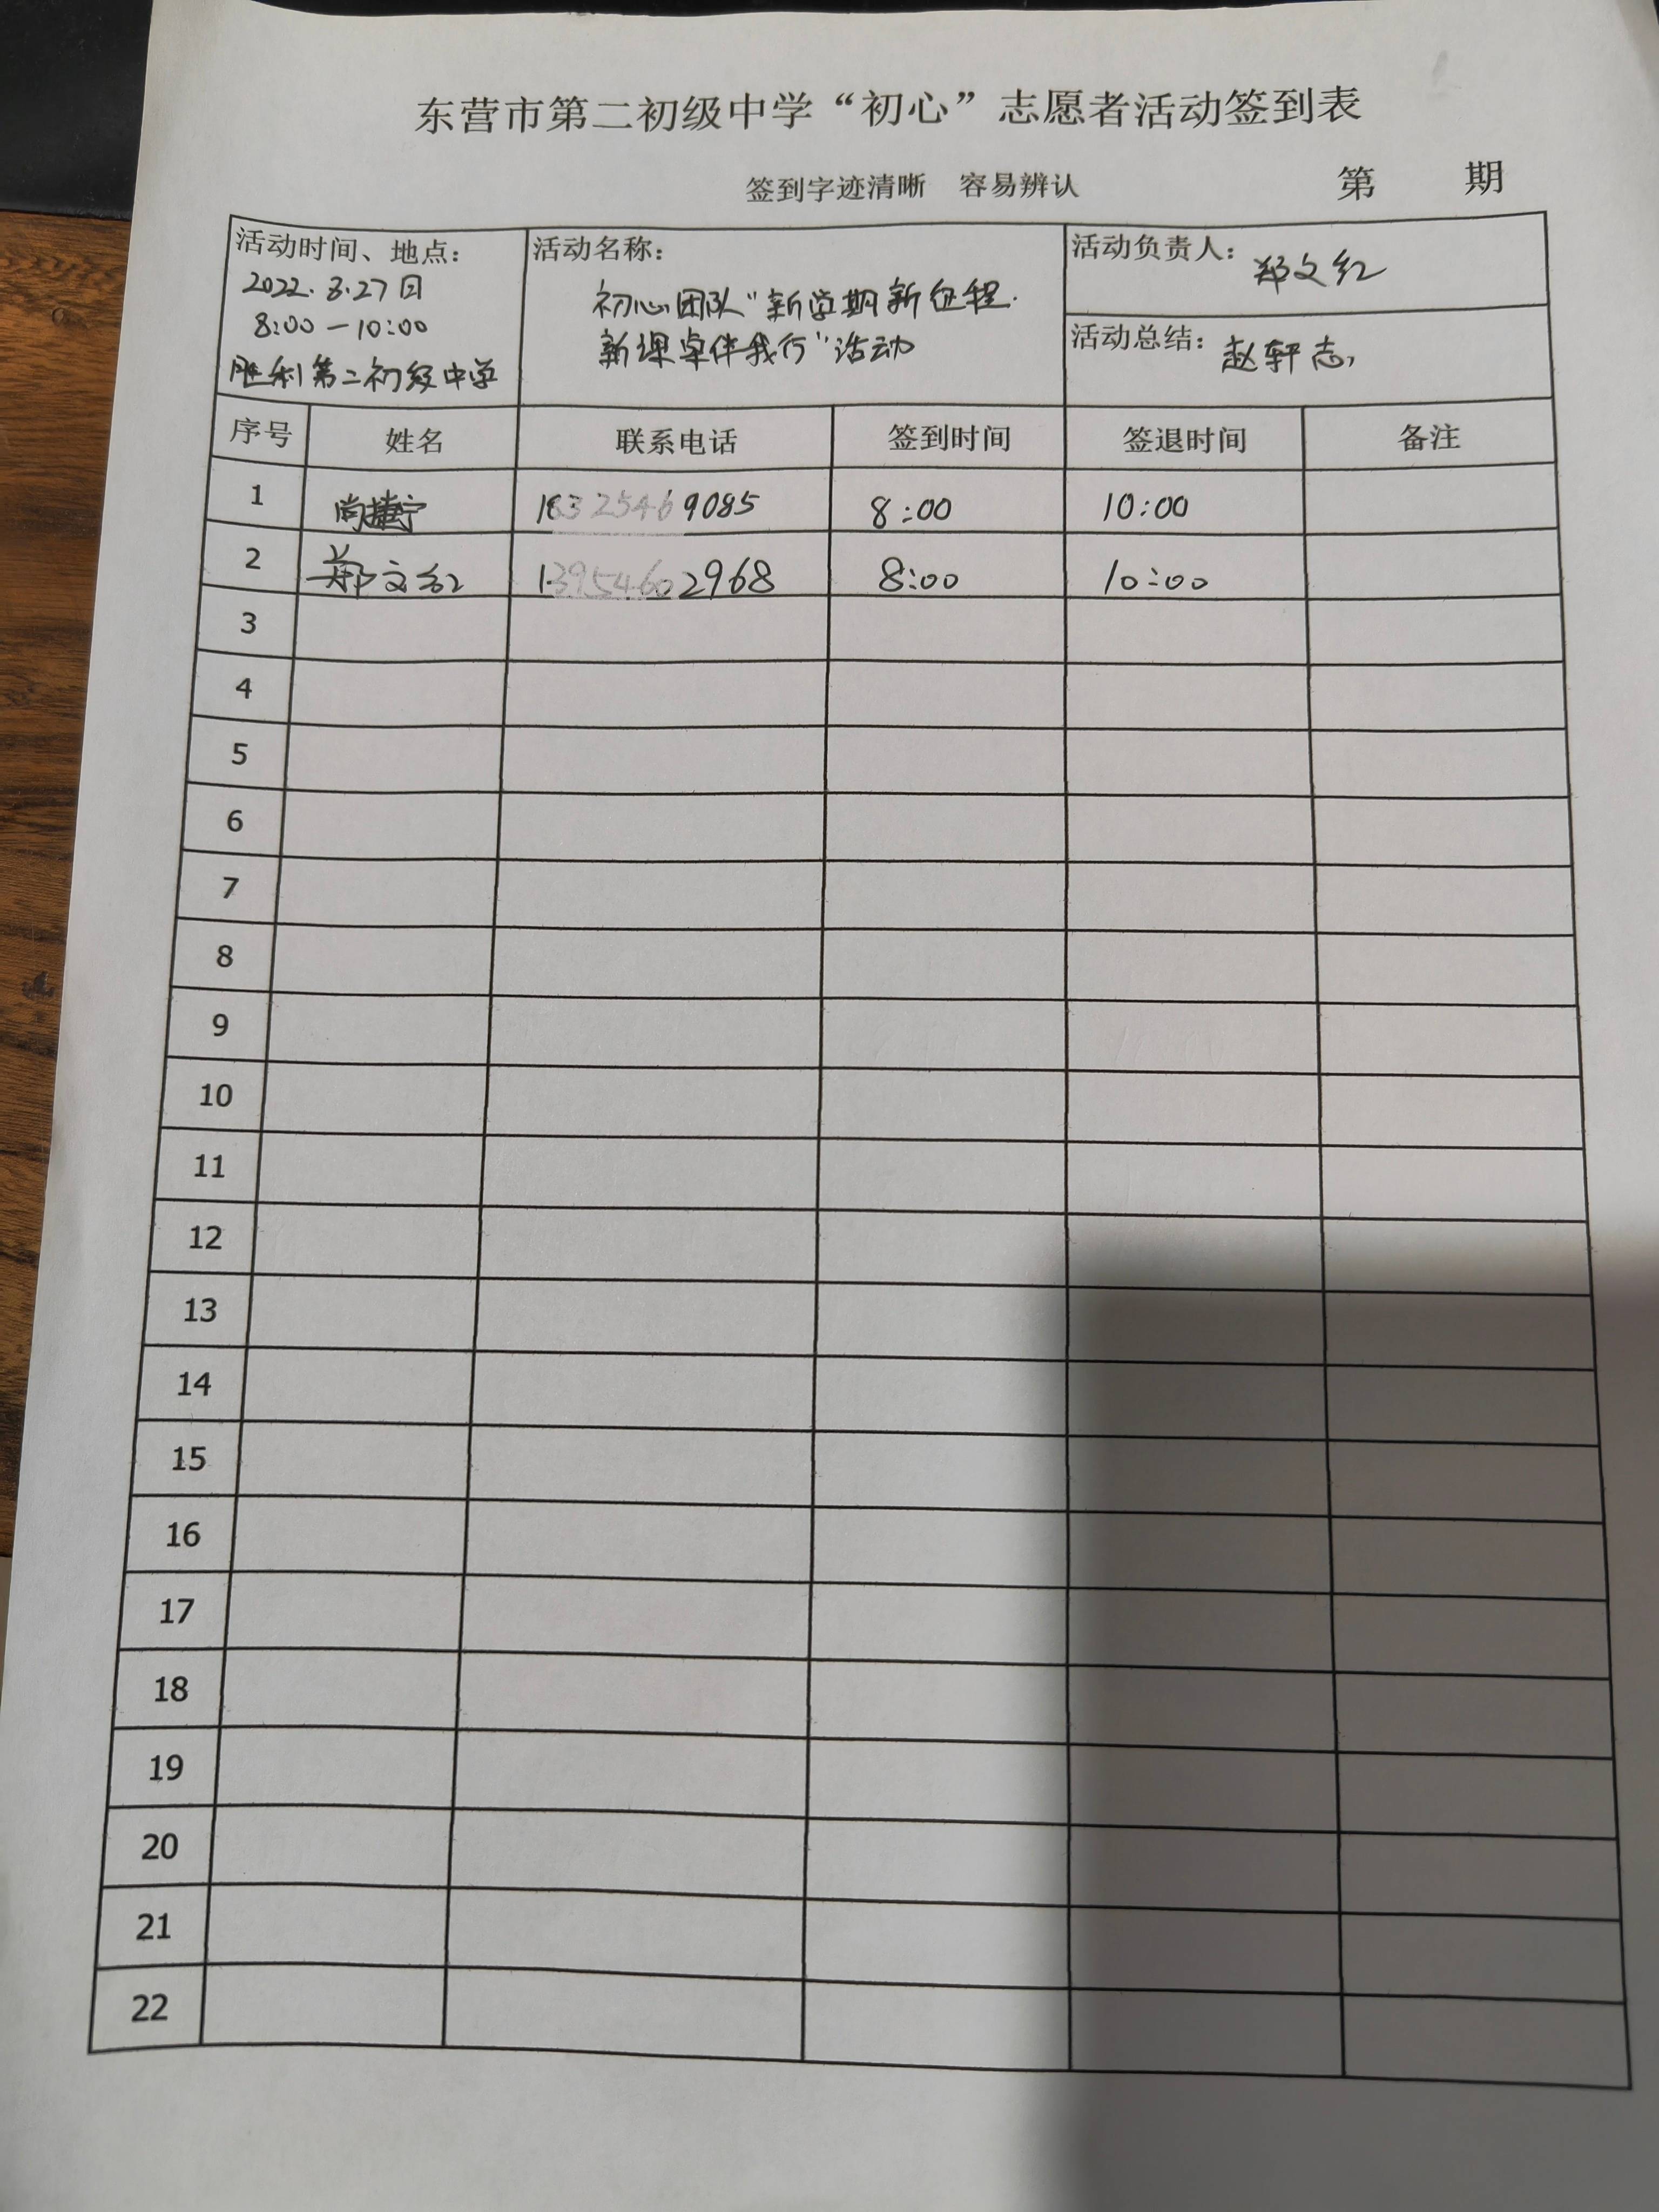 东营市第二初级中学“初心”志愿者活动签到表
签到字迹清晰 容易辨认 第 期
活动时间、地点：
2022.8.27日
8:00—10:00
胜利第二初级中学
活动名称：
初心团队“新学期新征程.
新课桌伴我行”活动
活动负责人：郑文红
活动总结：赵轩志
序号 姓名 联系电话 签到时间 签退时间 备注
1 9085 8:00 10:00
2 郑文红 13954602968 8:00 10:00
3
4
5
6
7
8
9
10
11
12
13
14
15
16
17
18
19
20
21
22